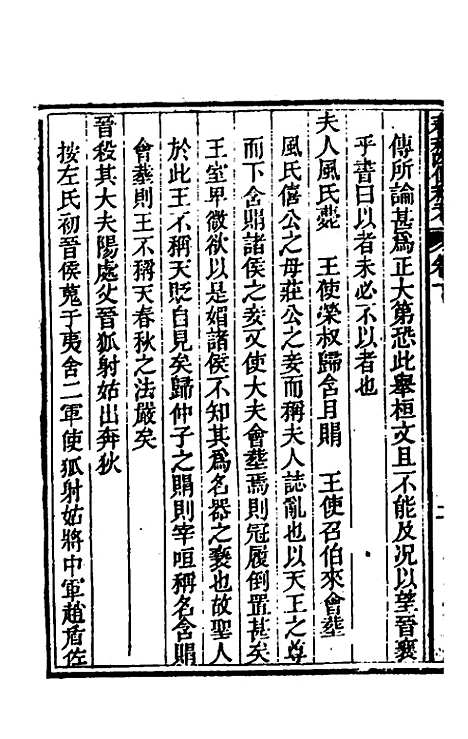 傳所論甚爲正大第恐此舉桓文且不能及况以望晉襄
乎書曰以者未必不以者也
夫人風氏薨　王使榮叔歸含且賵　王使召伯來會葬
風氏僖公之母莊公之妾而稱夫人誌亂也以天王之尊
而下含賵諸侯之妾又使大夫會葬焉則冠履倒置甚矣
王室卑微欲以是媚諸侯不知其爲名器之褻也故聖人
於此王不稱天貶自見矣歸仲子之賵則宰咺稱名含賵
會葬則王不稱天春秋之法嚴矣
晉殺其大夫陽處父晉狐射姑出奔狄
按左氏初晉侯蒐于夷舍二軍使狐射姑將中軍趙盾佐